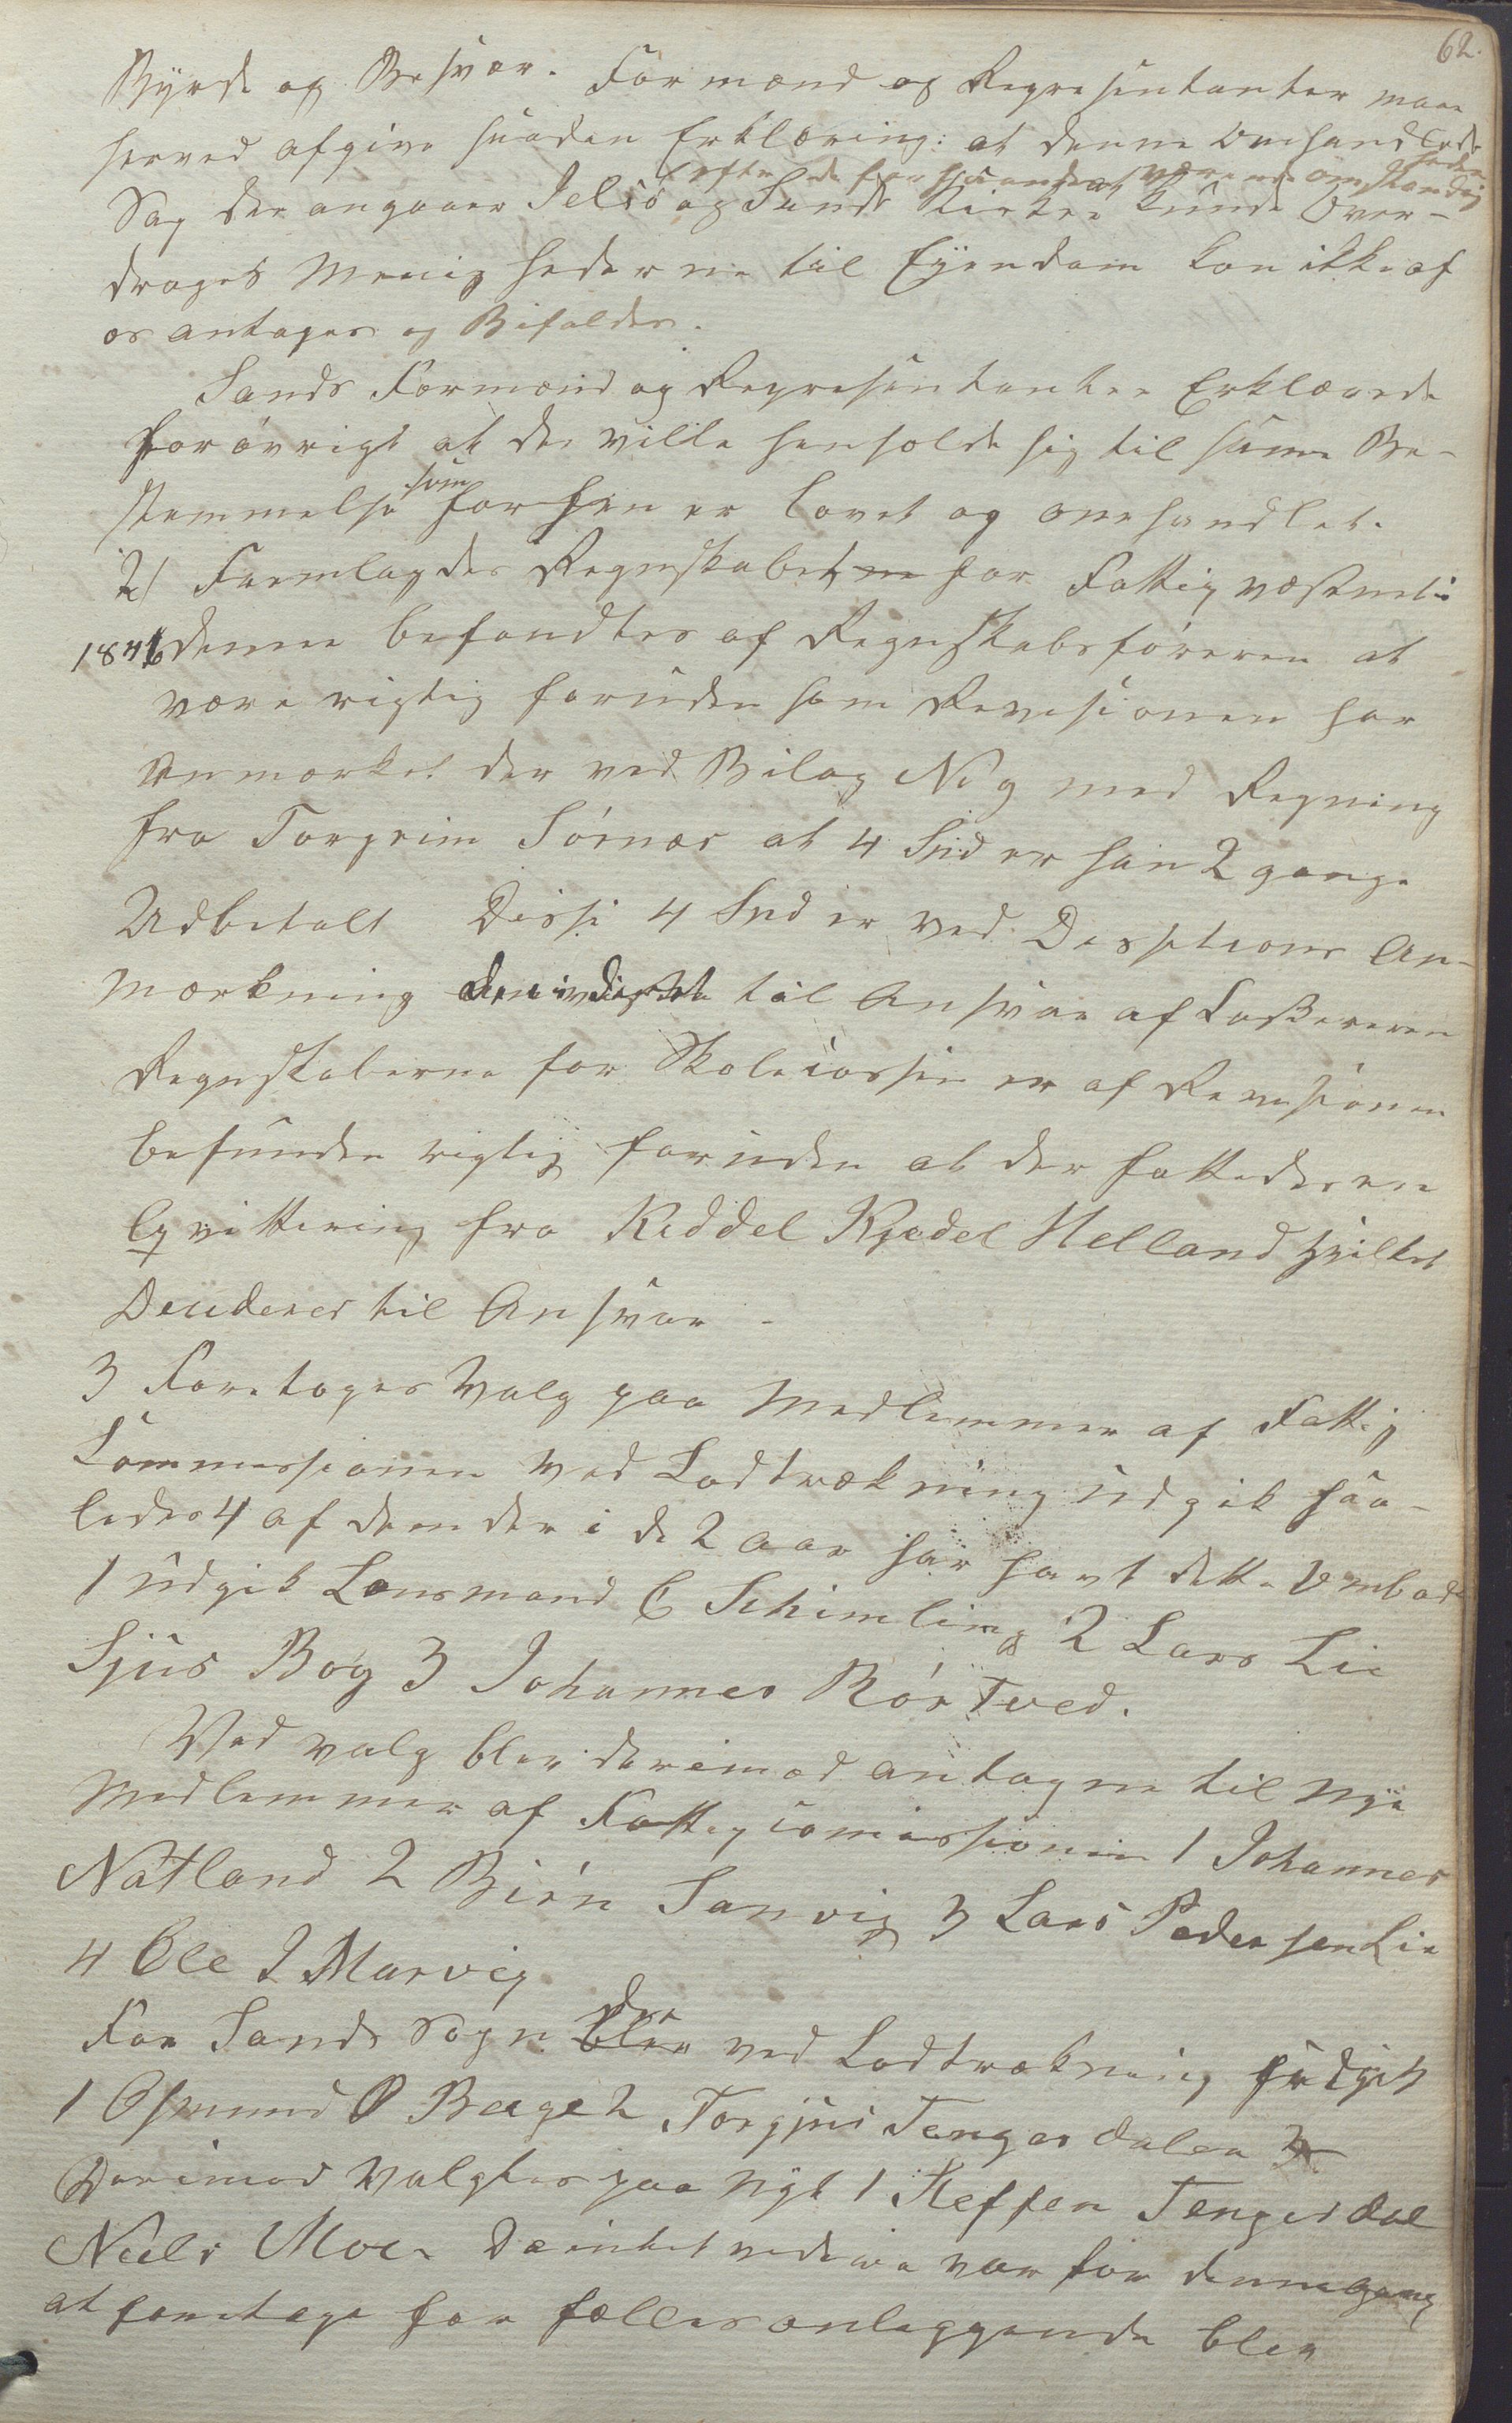 62.
Byrde og Besvær. Formænd og Representanter maae
herved afgive saadan Erklæring: at denne omhandlede
efter de for haanden værende omstændig heder
Sag der angaaer Jelsö og Sands Kirker kunde Over-
drages Menighederne til Eyendom kan ikke af
os antages og Bifaldes.
Sands Formænd og Representanter Erklærede
for övrigt at de ville henholde sig til samme Be-
stemmelse som forhen er lovet og omhandlet.
2) Fremlagdes Regnskabet for Fattigvæsenet i
1846 denne befandtes af Regnskabsföreren at
være rigtig foruden som Revisionen har
Anmærket der ved Bilag No 9 med Regning
fra Torgrim Sörnæs at 4 Spd er han 2 gange
Udbetalt Disse 4 Spd er ved Desitions An-
mærkning til Ansvar af Cassereren
Regnskaberne for Skolecassen er af Revisionen
befunden rigtig foruden at der fattedes en
Qvittering fra Keddel Kjedel Helland hvilket
Deciderer til Ansvar -
3 Foretoges Valg paa Medlemmer af Fattig
Commissionen Ved Lodtrækning udgik saa-
ledes 4 af dem der i de 2 aar har havt dette Embede
1 udgik Lensmand C Schimling 2 Lars Lie
Sjus Bög 3 Johannes Rör Tved.
Ved valg blev derimod antagne til nye
Medlemmer af Fattigcomissionen 1 Johannes
Nátland 2 Biörn Sanvig 3 Lars Pedersen Lie
4 Ole J Marvig
For Sands Sogn der ved Lodtrækning udgik
1 Osmund O Berge 2 Torgjus Tengesdalen 3
Derimod Valgtes paa nyt 1 Steffen Tengesdal
Niels Moe. Da intet videre var for dennegang
at foretage for fælles anleggende blev